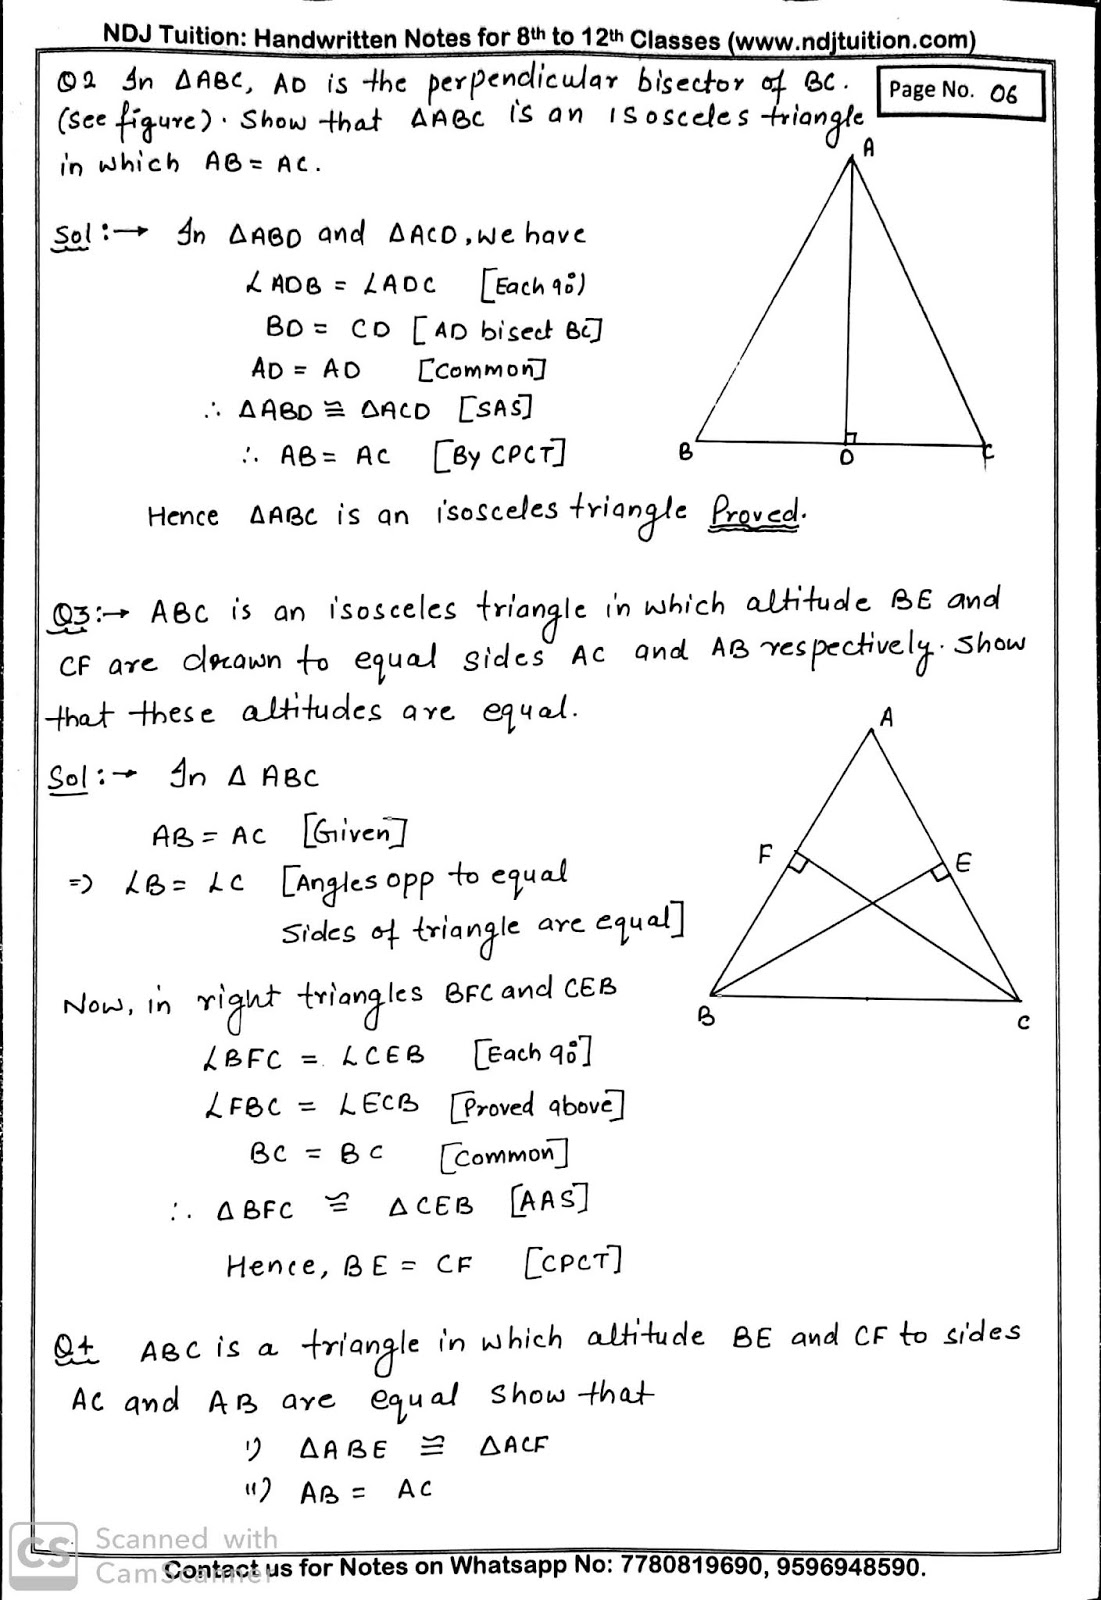 NDJ Tuition: Handwritten Notes for 8th to 12th Classes (www.ndjtuition.com)
Page No. 06
Q2 In ΔABC, AD is the perpendicular bisector of BC.
(see figure). Show that ΔABC is an isosceles triangle
in which AB = AC.
A
Sol :→ In ΔABD and ΔACD, we have
∠ADB = ∠ADC [Each 90°)
BD = CD [AD bisect BC]
AD = AD [Common]
∴ ΔABD ≅ ΔACD [SAS]
∴ AB = AC [By CPCT]
B D C
Hence ΔABC is an isosceles triangle Proved.
Q3:→ ABC is an isosceles triangle in which altitude BE and
CF are drawn to equal sides AC and AB respectively. Show
that these altitudes are equal.
A
Sol :→ In Δ ABC
AB = AC [Given]
⇒ ∠B = ∠C [Angles opp to equal
Sides of triangle are equal]
F E
Now, in right triangles BFC and CEB
B C
∠BFC = ∠CEB [Each 90°]
∠FBC = ∠ECB [Proved above]
BC = BC [Common]
∴ ΔBFC ≅ ΔCEB [AAS]
Hence, BE = CF [CPCT]
Q4 ABC is a triangle in which altitude BE and CF to sides
AC and AB are equal show that
i) ΔABE ≅ ΔACF
ii) AB = AC
CS Scanned with
CamScanner
Contact us for Notes on Whatsapp No: 7780819690, 9596948590.